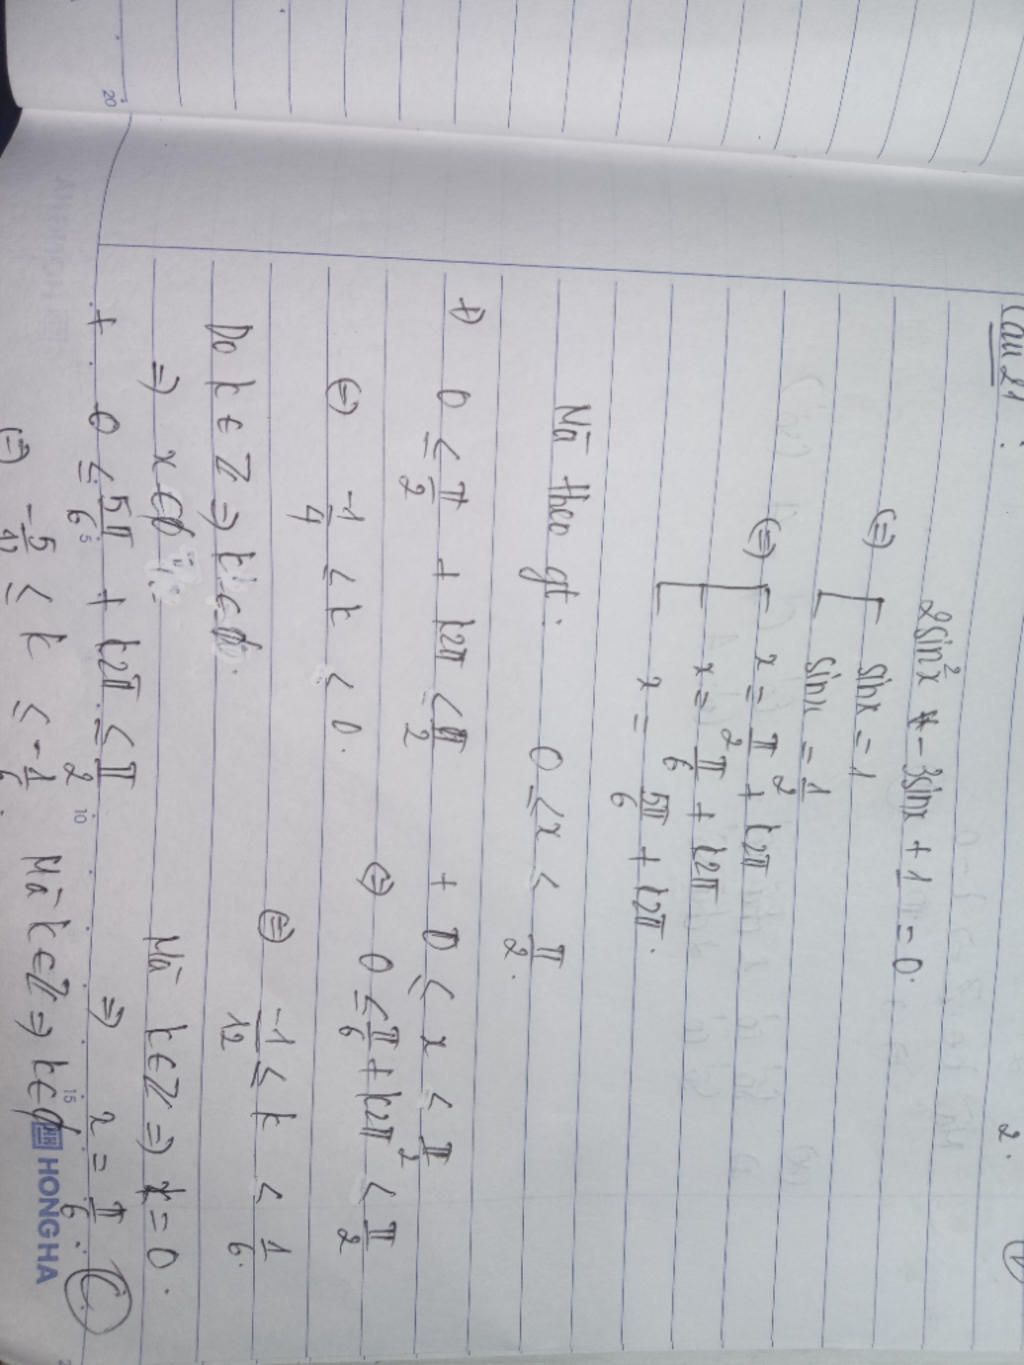 Câu 21 :
2.
2sin²x - 3sinx + 1 = 0.
(=) [ sinx = 1
sinx = 1/2
(=) [ x = π/2 + k2π
x = π/6 + k2π
x = 5π/6 + k2π.
Mà theo gt : 0 ≤ x < π/2.
+) 0 ≤ π/2 + k2π < π/2
(=) -1/4 ≤ k < 0.
Do k ∈ ℤ => k ∈ ∅.
=> x ∈ ∅
+ 0 ≤ x ≤ π/2
(=) 0 ≤ π/6 + k2π < π/2
(=) -1/12 ≤ k < 1/6.
Mà k ∈ ℤ => k = 0.
=> x = π/6. (C)
+ 0 ≤ 5π/6 + k2π ≤ π/2
(=) -5/12 ≤ k ≤ -1/6.
Mà k ∈ ℤ => k ∈ ∅
HONG HA
20
5
10
15